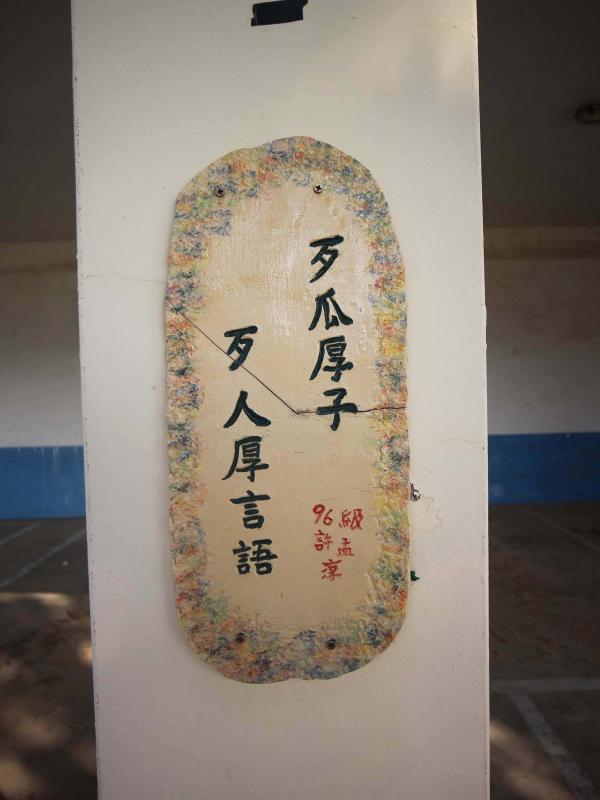 歹瓜厚子
歹人厚言語
96級
許孟淳